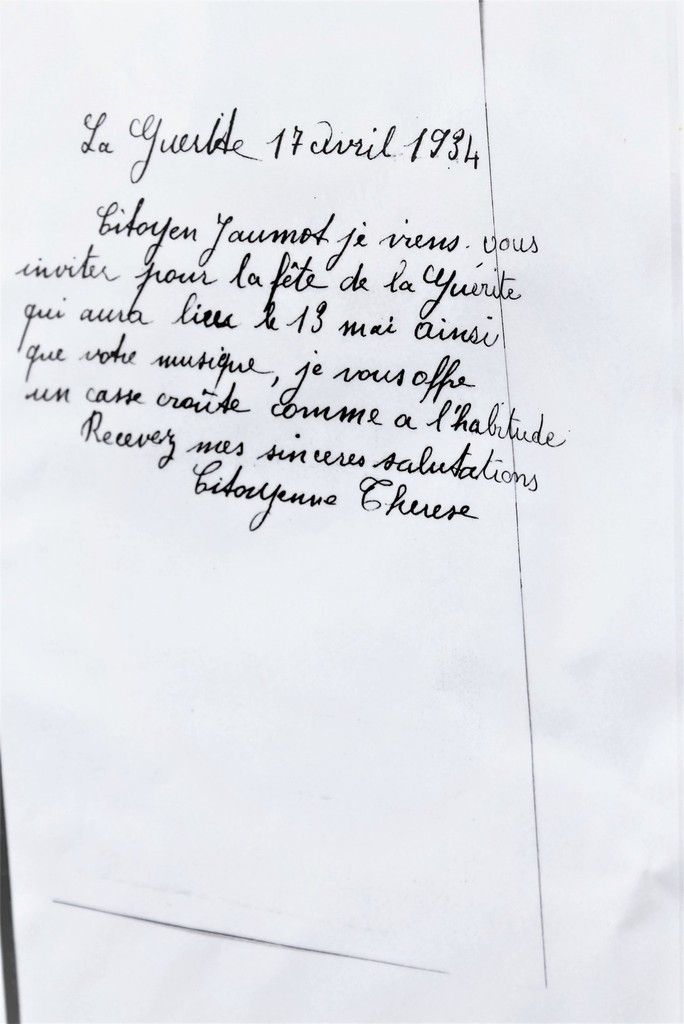 La Guerite 17 avril 1934
Citoyen Jaumot je viens vous
inviter pour la fête de la Guérite
qui aura lieu le 13 mai ainsi
que votre musique, je vous offre
un casse croûte comme a l'habitude
Recevez mes sinceres salutations
Citoyenne Therese